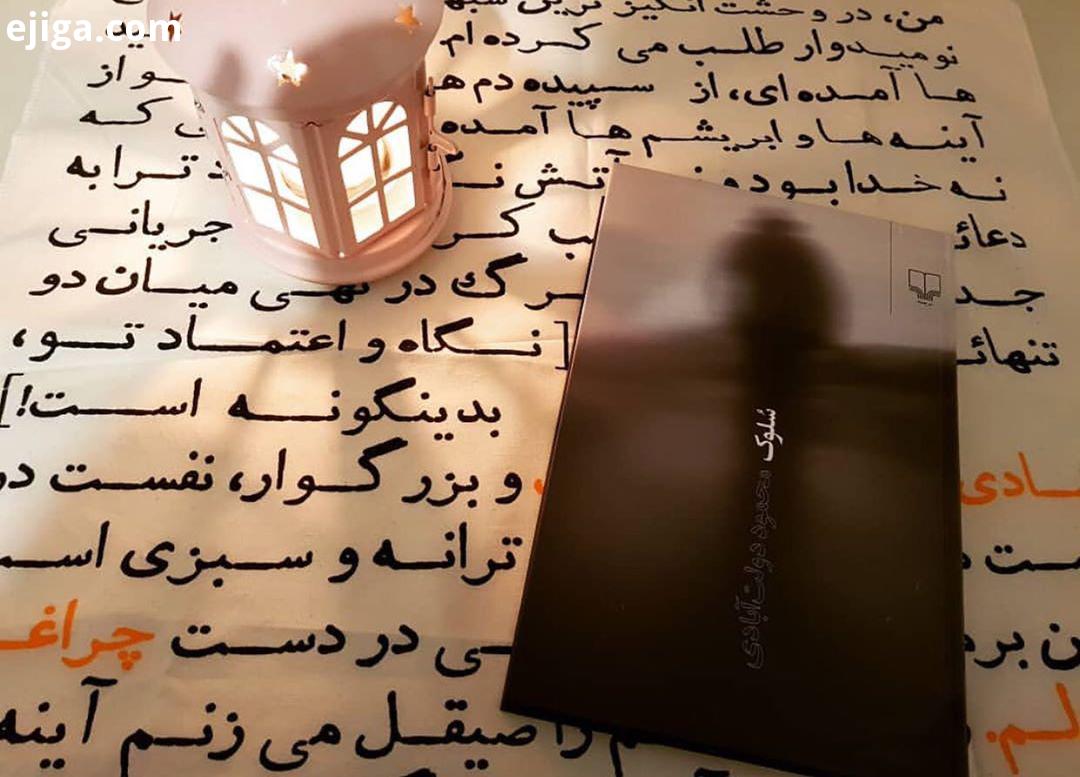 ejiga.com
من، در وحشت انگیز ترین
نومیدوار طلب می کرده ام
ها آمده ای، از سپیده دم و از
آینه ها و ابریشم ها آمده که
نه خدا بود و آتش ترا به
دعائ کر جریانی
جد گ در میان دو
تنهائ [نگاه و اعتماد تو،
بدینگونه است!]
ادی و بزرگوار، نفست در
ت ترانه و سبزی اس
بر در دست چراغ
لم. را صیقل می زنم آینه
سلوک
محمود دولت آبادی